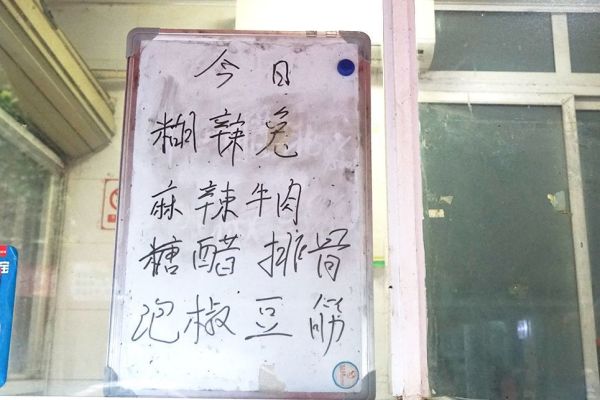 今日
糊辣兔
麻辣牛肉
糖醋排骨
泡椒豆筋
宝